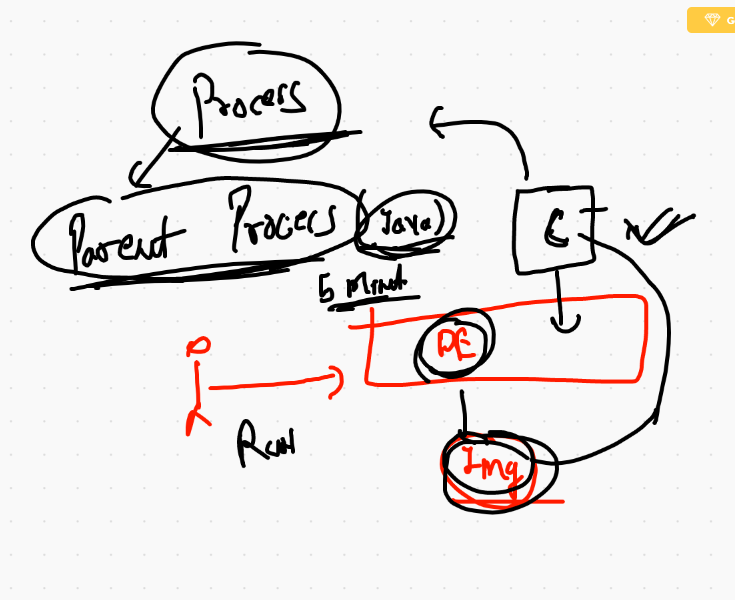 G
Process
Parent Process (Java)
C
5 Minut
DE
Run
Img